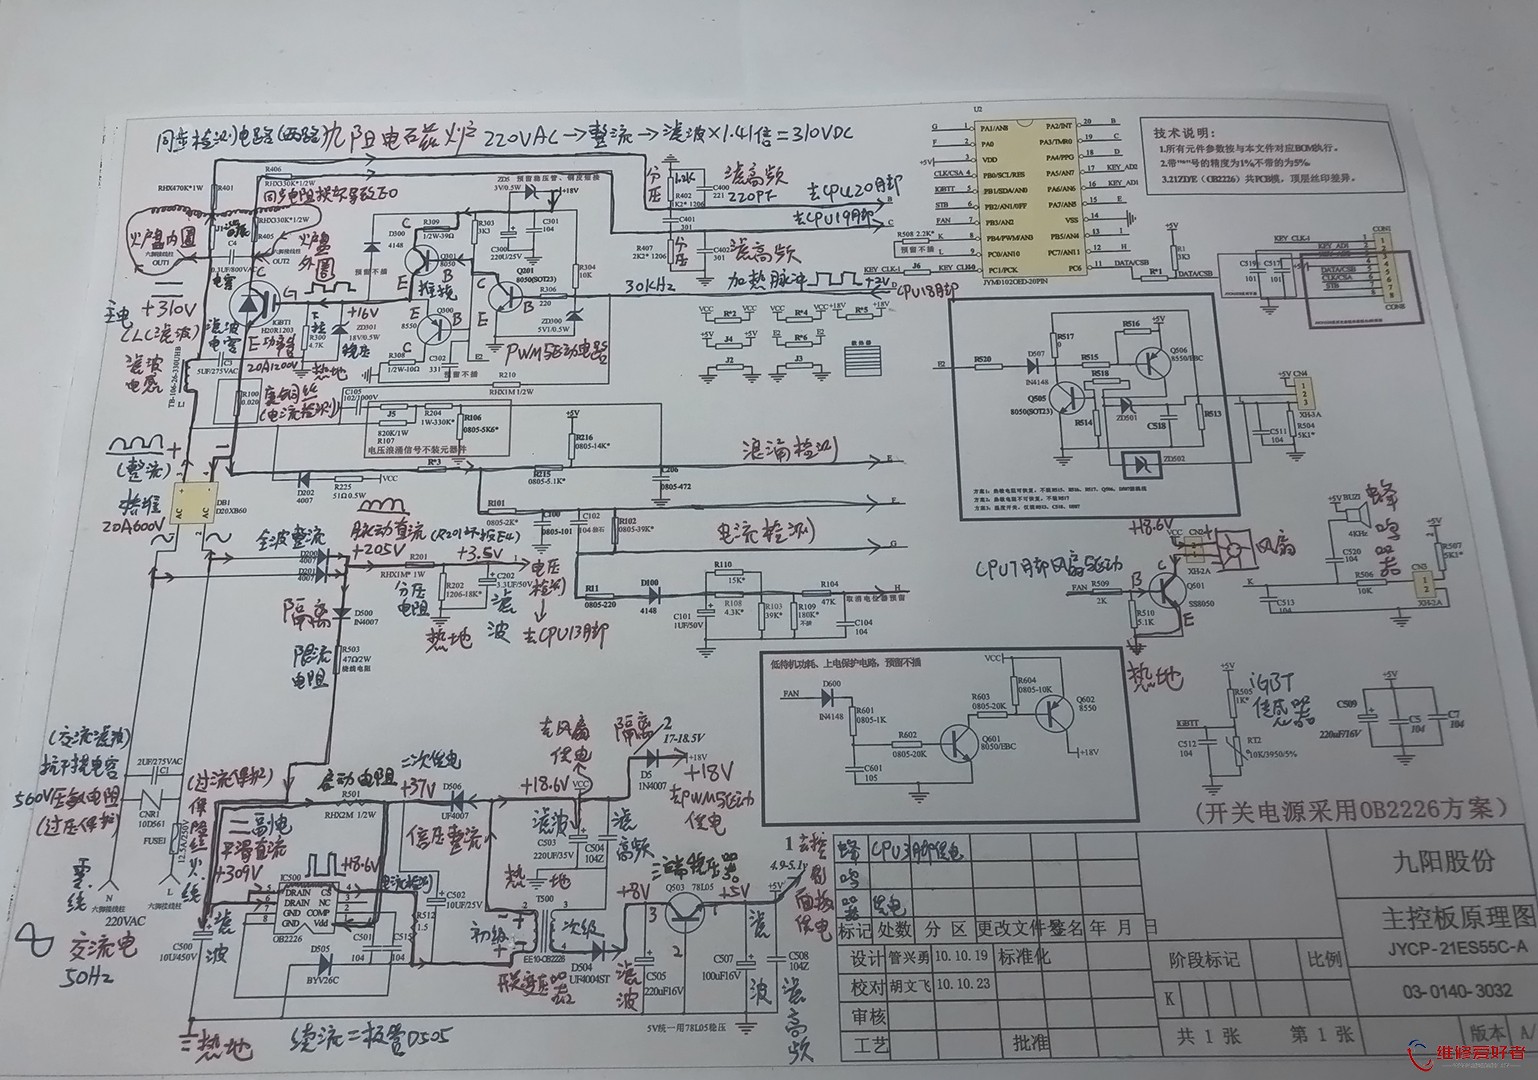 同步检测电路(两路)九阳电磁炉 220VAC→整流→滤波×1.41倍=310VDC
技术说明:
1.所有元件参数按与本文件对应BOM执行。
2.带"*"号的精度为1%不带的为5%。
3.21ZDYE(OB2226)共PCB模,顶层丝印差异。
U2
PA1/AN8
PA2/INT
PA0
PA3/TMR0
VDD
PA4/PPG
PB0/SCL/RES
PA5/AN7
PB1/SDA/AN0
PA6/AN6
PB2/AN1/0FF
PA7/AN5
PB3/AN2
VSS
PB4/PWM/AN3
PB5/AN4
PC0/AN10
PC7/AN11
PC1/PCK
PC6
JYM0102OED-20PIN
RHX470K*1W
R401
R406
RHX330K*1/2W
同步电阻损坏导致E0
RHX330K*1/2W
R405
炉盘内圈
炉盘外圈
OUT1
OUT2
C4
0.3UF/800V
电容
ZD5 预留稳压管、铜皮短接
3V/0.5W
+18V
D300
4148
预留不插
R309
1/2W-39Ω
R303
3K3
C300
220U/25V
C301
104
R304
10K
Q301
8050
推挽
Q201
8050(SOT23)
Q300
8550
R306
220
ZD300
5V1/0.5W
PWM驱动电路
R308
1/2W-10Ω
C302
331
预留不插
R210
RHX1M 1/2W
分压
1.2K
R402
1K2* 1206
C400
221
滤高频
220PF
去CPU20脚
去CPU19脚
C401
104
R407
2K2* 1206
分压
C402
301
滤高频
30KHz
加热脉冲
CPU18脚
R508 2.2K*
预留不插
KEY CLK-1
J6
CLK/CSA
IGBTT
STB
FAN
KEY_AD2
KEY_AD1
DATA/CSB
R*1
R1
3K3
+5V
CON1
CON8
C519
101
C517
101
+310V
(LC滤波)
滤波电感
滤波电容
IGBT1
H20R1203
功率管
20A1200V
R300
4.7K
+16V
ZD301
18V/0.5W
稳压
热地
C3
5UF/275VAC
TB-106-26-330UHB
L1
R100
0.020
康铜丝
(电流检测)
C105
102/1000V
J5
R204
1W-330K*
R106
0805-5K6*
820K/1W
R107
电压浪涌信号不装元器件
R*2
R*4
R*5
J4
R*6
J2
J3
散热器
(整流)
桥堆
20A600V
DB1
D20XB60
AC
AC
D202
4007
R225
51Ω0.5W
VCC
R*3
R215
0805-5.1K*
R216
0805-14K*
C206
0805-472
浪涌检测
R101
0805-2K*
C100
0805-101
C102
104
R102
0805-39K*
电流检测
全波整流
D200
4007
D201
4007
脉动直流(R201坏报E4)
+205V
R201
RHX1M* 1W
+3.5V
R202
1206-18K*
分压电阻
C202
3.3UF/50V
滤波
电压检测
去CPU13脚
热地
R11
0805-220
D100
4148
R110
15K*
C101
1UF/50V
R108
4.3K*
R103
39K*
R109
180K*
不插
R104
47K
C104
104
取消电位器预留
R520
D507
IN4148
R517
0
R516
R515
R518
Q506
8550/EBC
Q505
8050(SOT23)
R514
ZD501
C518
R513
ZD502
CN4
XH-3A
C511
104
R504
5K1*
隔离
D500
IN4007
限流电阻
R503
47Ω2W
绕线电阻
CPU7脚风扇驱动
FAN
R509
2K
R510
5.1K
Q501
SS8050
+18.6V
VCC
CN2
XH-2A
风扇
热地
蜂鸣器
BUZ1
4KHz
C520
104
R506
10K
C513
104
CN3
XH-2A
R507
5K1*
低待机功耗、上电保护电路,预留不插
FAN
D600
IN4148
R601
0805-1K
R602
0805-20K
C601
105
Q601
8050/EBC
R603
0805-20K
R604
0805-10K
Q602
8550
VCC
+18V
R505
1K*
IGBT传感器
IGBTT
C512
104
RT2
10K/3950/5%
C509
220uF/16V
C5
104
C7
104
(开关电源采用OB2226方案)
(交流滤波)
抗干扰电容
2UF/275VAC
C1
560V压敏电阻
(过压保护)
CNR1
10D561
FUSE1
(过流保护)
保险丝
零线
火线
N
L
六脚接线柱
六脚接线柱
220VAC
交流电
50Hz
启动电阻
R501
RHX2M 1/2W
二次供电
+37V
D506
UF4007
倍压整流
平滑直流
+309V
+18.6V
IC500
DRAIN CS
DRAIN NC
GND COMP
GND Vdd
OB2226
C500
10U/450V
滤波
D505
BYV26C
C501
104
C515
104
电流检测
R512
1.5
C502
10UF/25V
续流二极管D505
热地
去风扇供电
+18.6V
VCC
滤波
C503
220UF/35V
C504
104Z
滤高频
热地
隔离
D5
1N4007
17-18.5V
+18V
去PWM驱动供电
T500
初级
次级
EE10-OB2226
开关变压器
D504
UF4004ST
+8V
三端稳压器
Q503
78L05
+5V
C505
220uF16V
滤波
C507
100uF16V
滤波
C508
104Z
滤高频
5V统一用78L05稳压
4.9-5.1V
去控制面板供电
蜂鸣器供电
CPU3脚供电
标记 处数 分 区 更改文件 签名 年 月 日
设计 管兴勇 10.10.19 标准化
校对 胡文飞 10.10.23
审核
工艺
批准
阶段标记
比例
K
共 1 张
第 1 张
九阳股份
主控板原理图
JYCP-21ES55C-A
03-0140-3032
版本
A/
维修爱好者